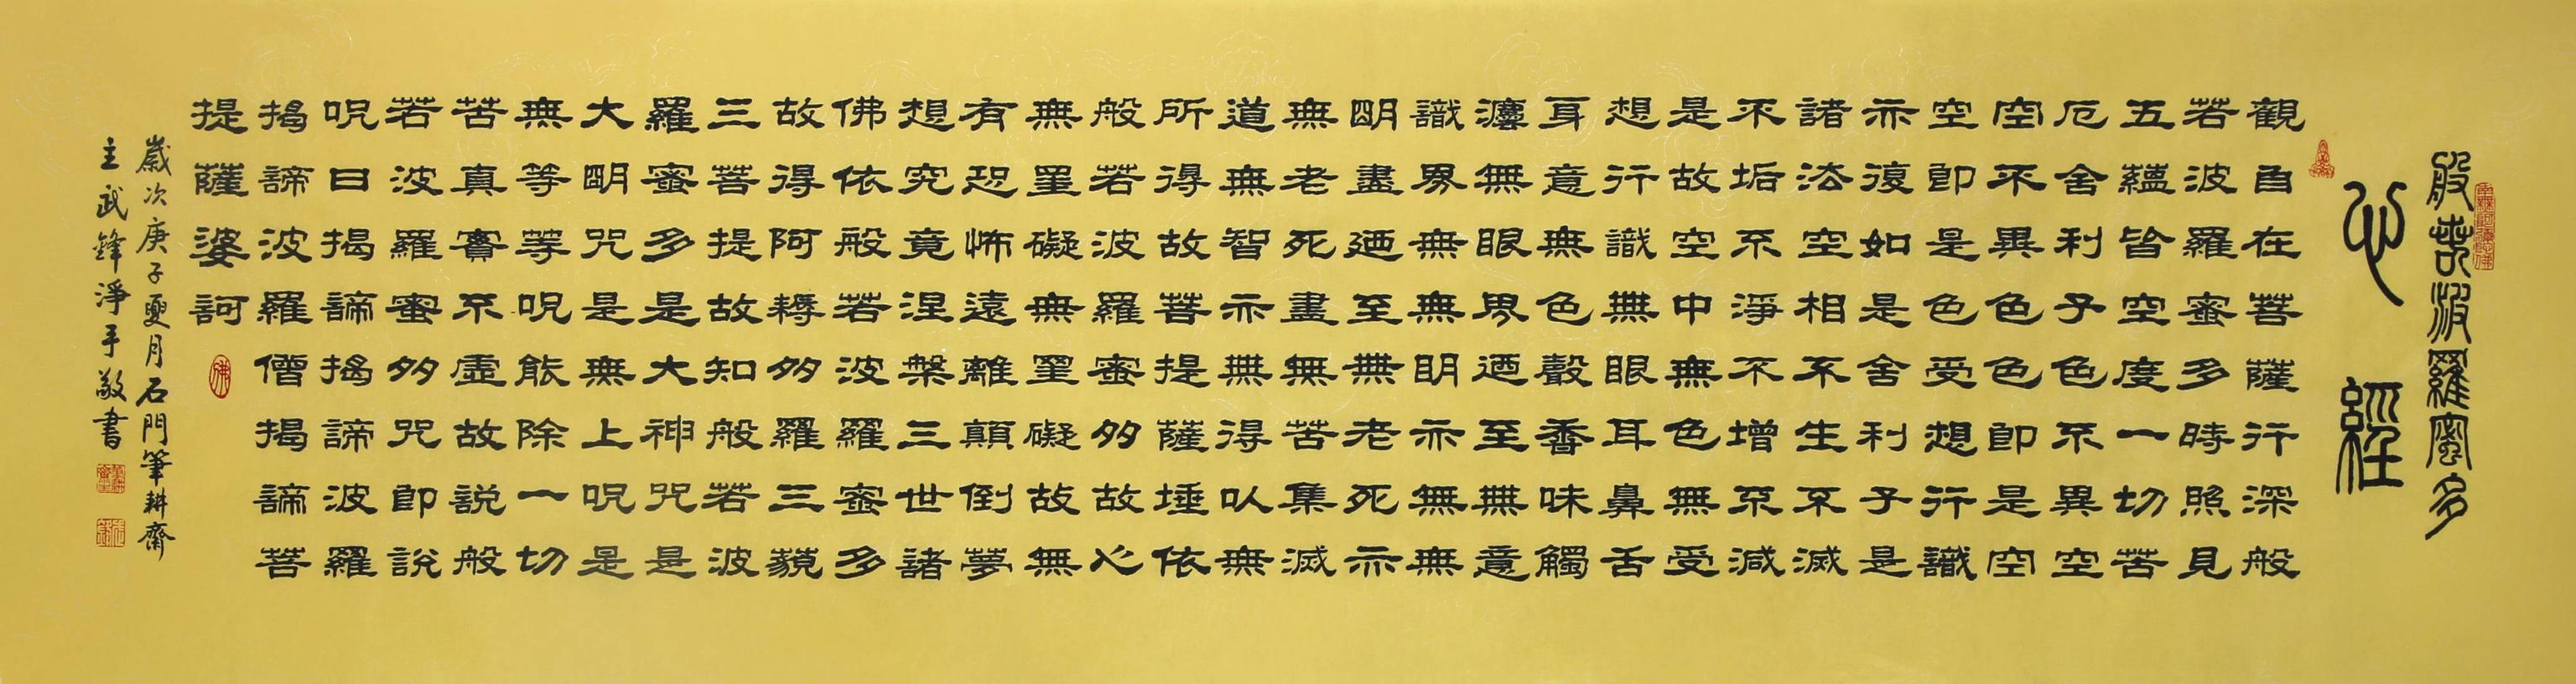 般若波羅蜜多
心經
觀自在菩薩行深般
若波羅蜜多時照見
五蘊皆空度一切苦
厄舍利子色不異空
空不異色色即是空
空即是色受想行識
亦復如是舍利子是
諸法空相不生不滅
不垢不淨不增不減
是故空中無色無受
想行識無眼耳鼻舌
身意無色聲香味觸
灋無眼界迺至無意
識界無無明亦無無
明盡迺至無老死亦
無老死盡無苦集滅
道無智亦無得以無
所得故菩提薩埵依
般若波羅蜜多故心
無罣礙無罣礙故無
有恐怖遠離顛倒夢
想究竟涅槃三世諸
佛依般若波羅蜜多
故得阿耨多羅三藐
三菩提故知般若波
羅蜜多是大神咒是
大明咒是無上呪是
無等等呪能除一切
苦真實不虛故說般
若波羅蜜多咒即說
呪曰揭諦揭諦波羅
揭諦波羅僧揭諦菩
提薩婆訶
佛
歲次庚子夏月石門筆耕齋
主武鋒淨手敬書